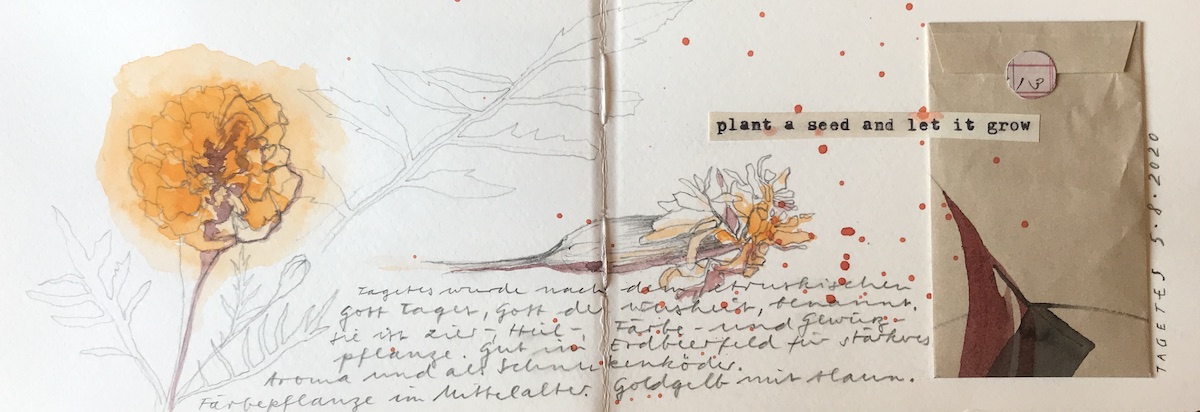 plant a seed and let it grow
TAGETES 5.8.2020
Tagetes wurde nach dem etruskischen
Gott Tages, Gott der Weisheit, benannt.
Sie ist Zier-, Heil-, Färbe- und Gewürz-
pflanze. Gut im Erdbeerfeld für stärkeres
Aroma und als Schneckenköder.
Färbepflanze im Mittelalter. Goldgelb mit Alaun.